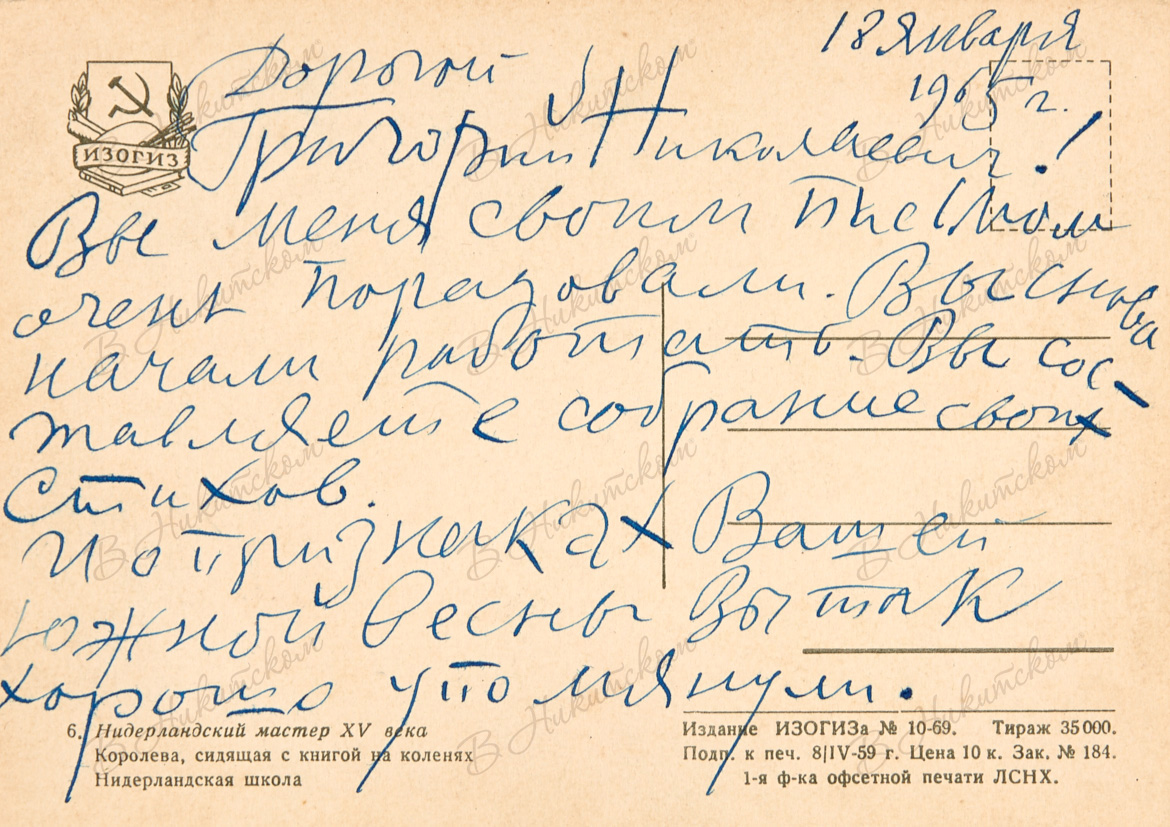 18 Января
1965 г.
Дорогой
Григорий Николаевич!
Вы меня своим письмом
очень порадовали. Вы снова
начали работать. Вы сос-
тавляете собрание своих
стихов.
И о признаках Вашей
южной весны Вы так
хорошо упомянули.
ИЗОГИЗ
6. Нидерландский мастер XV века
Королева, сидящая с книгой на коленях
Нидерландская школа
Издание ИЗОГИЗа № 10-69. Тираж 35 000.
Подп. к печ. 8|IV-59 г. Цена 10 к. Зак. № 184.
1-я ф-ка офсетной печати ЛСНХ.
В Никитском